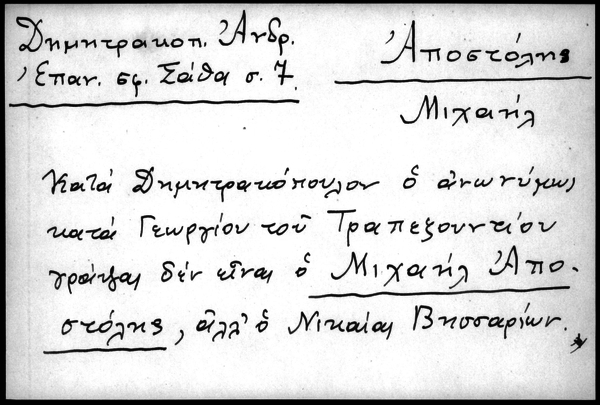 Δημητρακοπ. Ἀνδρ.
Ἐπαν. σφ. Σάθα σ. 7.
Ἀποστόλης
Μιχαήλ
Κατά Δημητρακόπουλον ὁ ἀνωνύμως
κατά Γεωργίου τοῦ Τραπεζουντίου
γράψας δέν εἶναι ὁ Μιχαήλ Ἀπο-
στόλης, ἀλλ' ὁ Νικαίας Βησσαρίων.